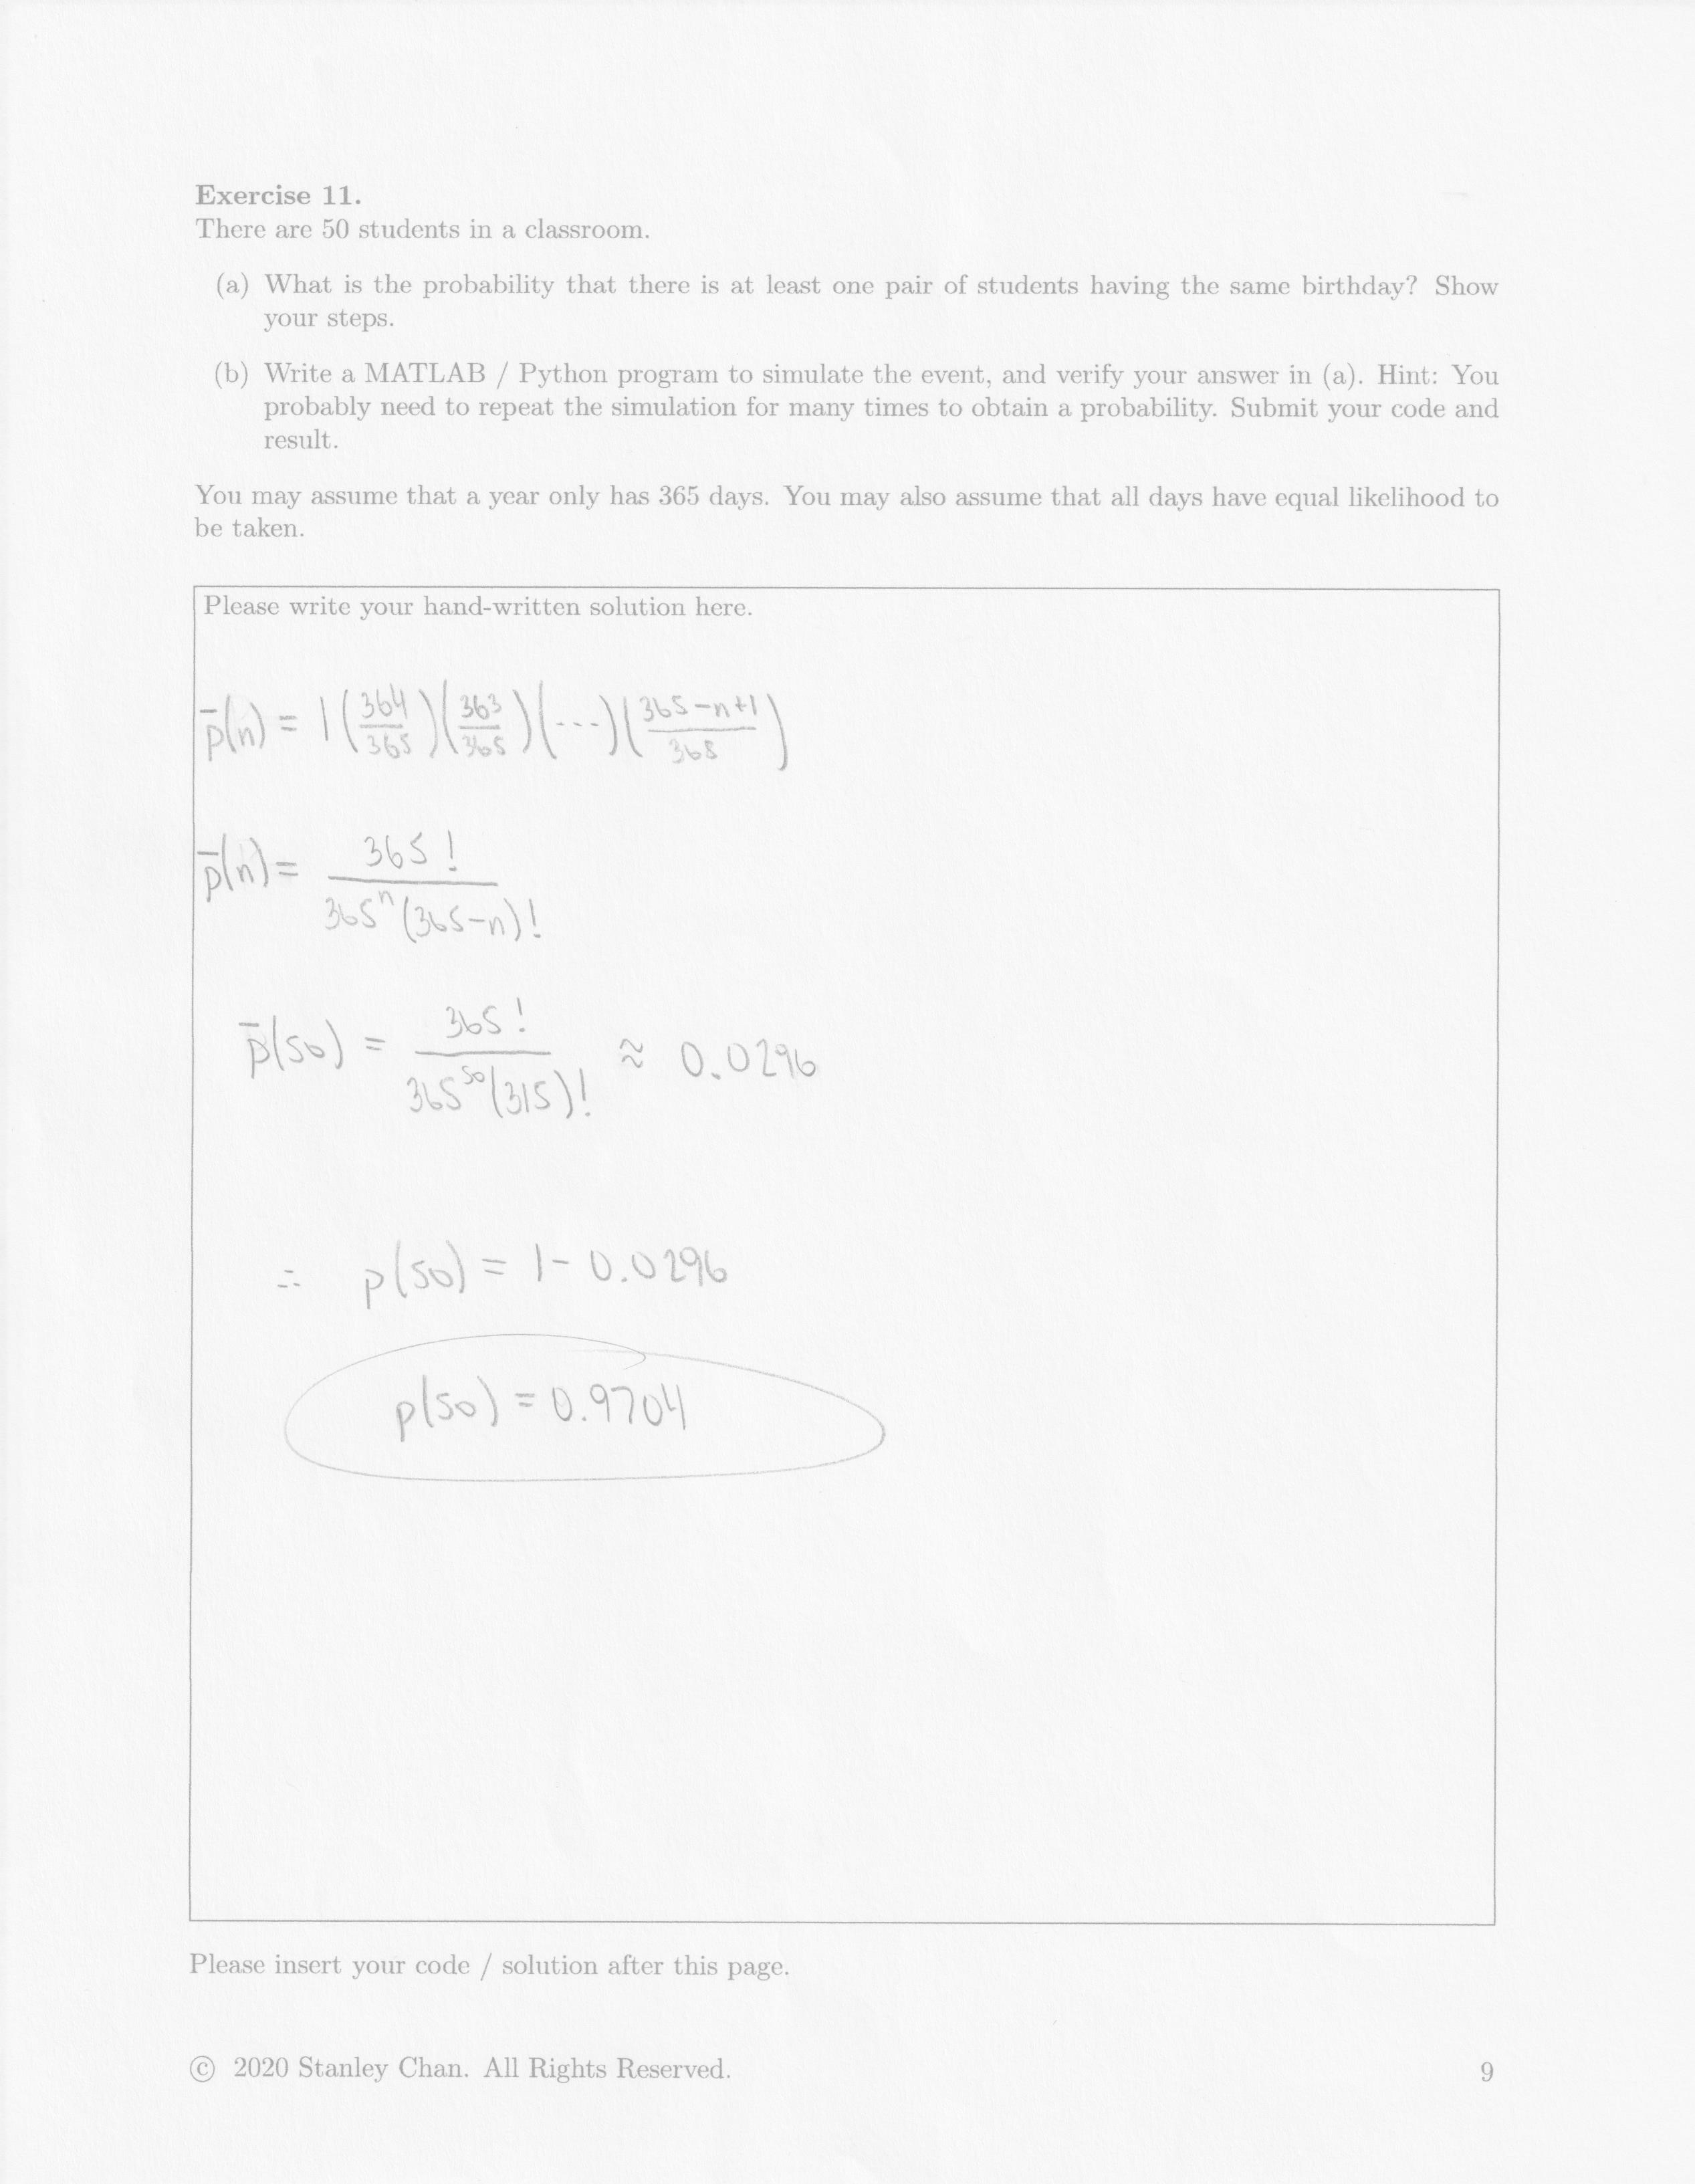 Exercise 11.
There are 50 students in a classroom.
(a) What is the probability that there is at least one pair of students having the same birthday? Show
your steps.
(b) Write a MATLAB / Python program to simulate the event, and verify your answer in (a). Hint: You
probably need to repeat the simulation for many times to obtain a probability. Submit your code and
result.
You may assume that a year only has 365 days. You may also assume that all days have equal likelihood to
be taken.
Please write your hand-written solution here.
p̄(n) = 1 (364/365)(363/365)(...)(365-n+1/365)
p̄(n) = 365! / 365ⁿ(365-n)!
p̄(50) = 365! / 365⁵⁰(315)! ≈ 0.0296
∴ p(50) = 1 - 0.0296
p(50) = 0.9704
Please insert your code / solution after this page.
© 2020 Stanley Chan. All Rights Reserved.
9